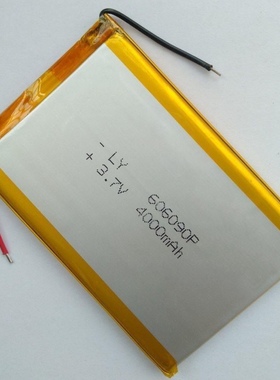 - LY 606090P
+ 3.7V 4000mAh